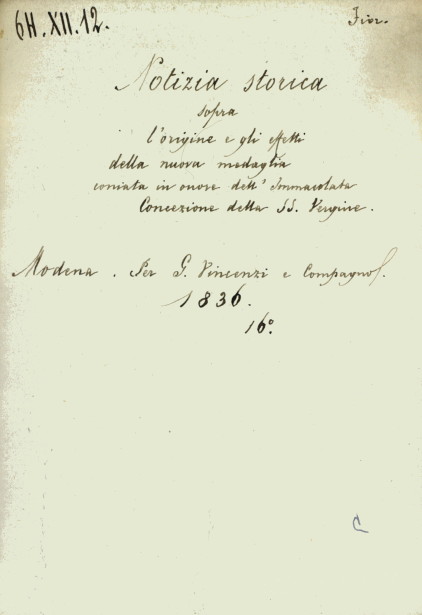 6H.XII.12.
Fior.
Notizia storica
sopra
l'origine e gli effetti
della nuova medaglia
coniata in onore dell' Immacolata
Concezione della SS. Vergine.
Modena. Per G. Vincenzi e Compagno.
1836.
16°.
C